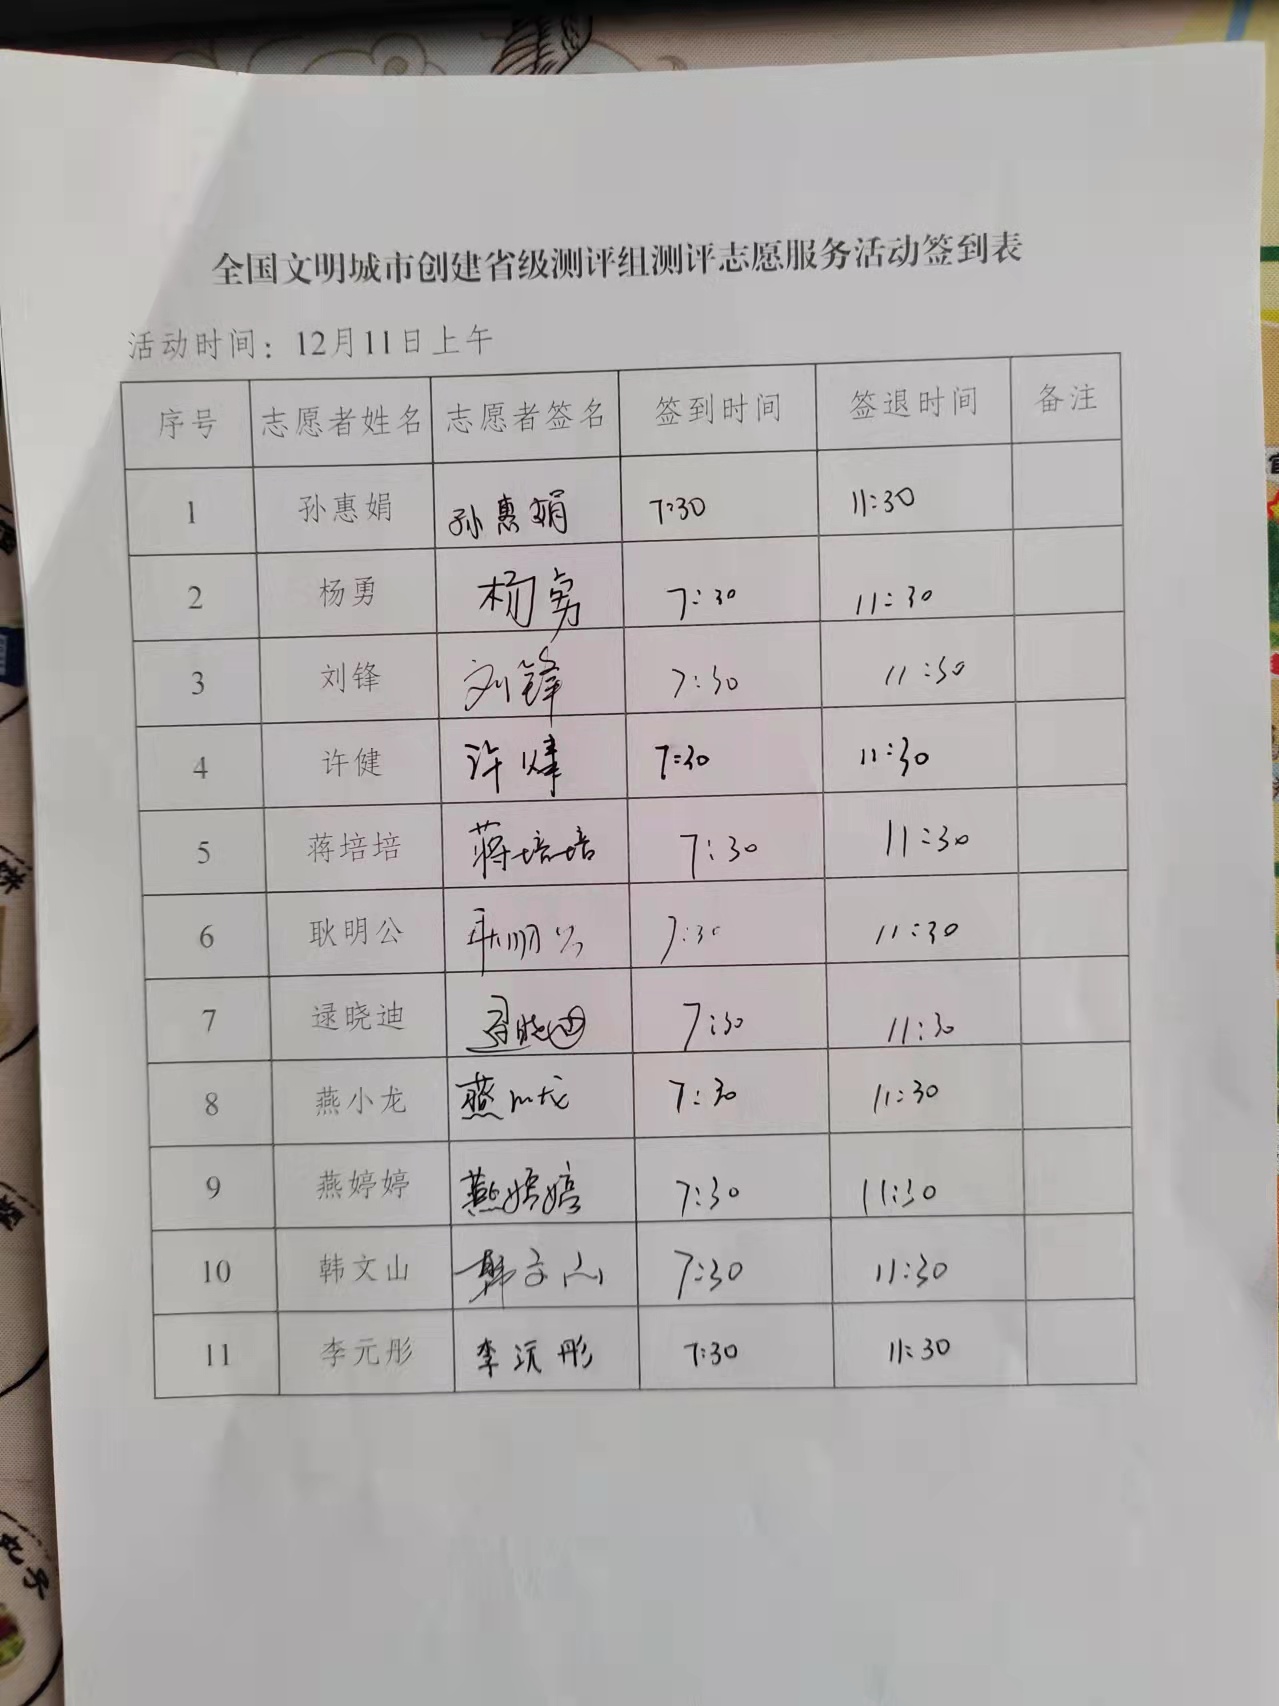 全国文明城市创建省级测评组测评志愿服务活动签到表
活动时间：12月11日上午
序号 志愿者姓名 志愿者签名 签到时间 签退时间 备注
1 孙惠娟 孙惠娟 7:30 11:30
2 杨勇 杨勇 7:30 11:30
3 刘锋 刘锋 7:30 11:30
4 许健 许健 7:30 11:30
5 蒋培培 蒋培培 7:30 11:30
6 耿明公 耿明公 7:30 11:30
7 逯晓迪 逯晓迪 7:30 11:30
8 燕小龙 燕小龙 7:30 11:30
9 燕婷婷 燕婷婷 7:30 11:30
10 韩文山 韩文山 7:30 11:30
11 李元彤 李沅彤 7:30 11:30